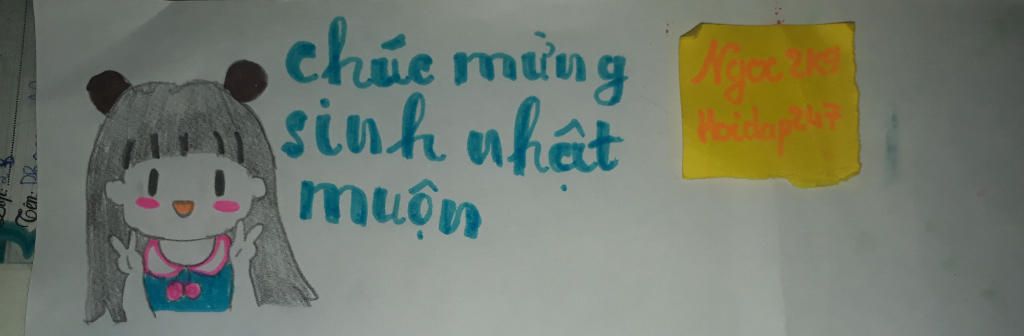 chúc mừng
sinh nhật
muộn
Ngọc 2K9
Hoidap247
Tên: